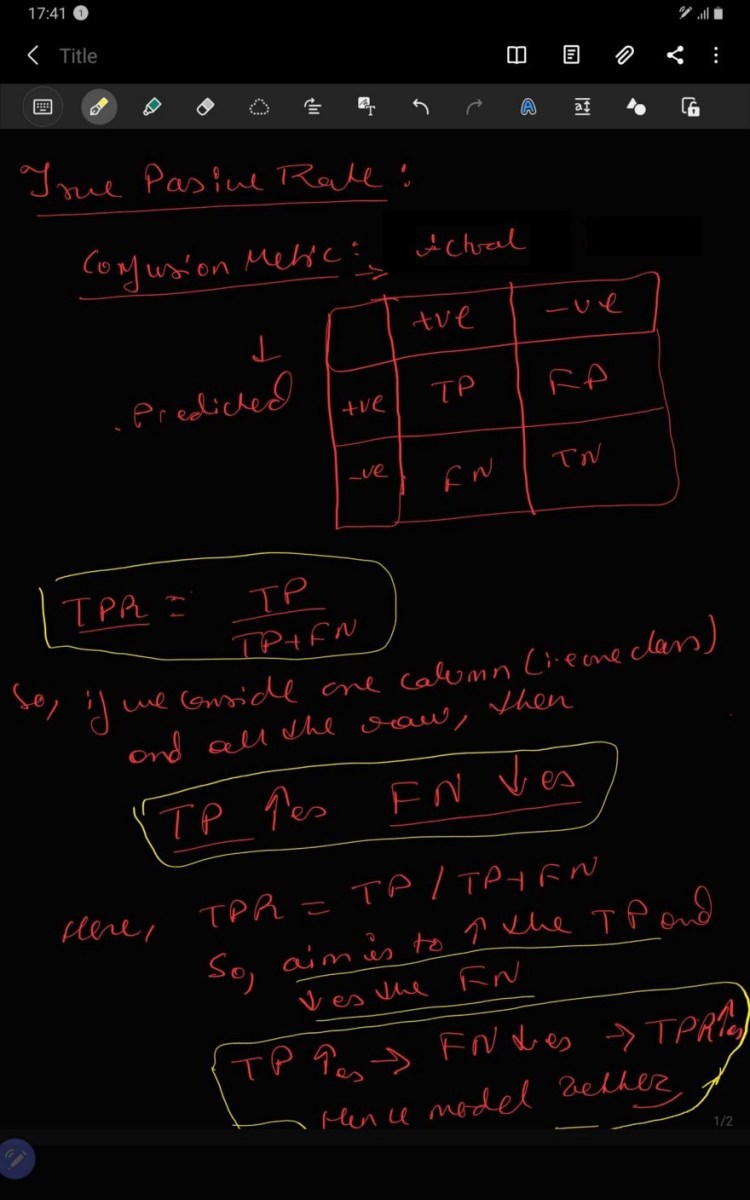 17:41 1
Title
True Pasive Rate :
Confusion Metric : → Actual
+ve -ve
↓
Predicted +ve TP FP
-ve FN TN
TPR = TP / TP+FN
So, if we conside one calumn (i.e one class)
and all the raw, then
TP ↑es FN ↓es
Here, TPR = TP / TP+FN
So, aim is to ↑ the TP and
↓es the FN
TP ↑es → FN ↓es → TPR↑es
Hence model
1/2